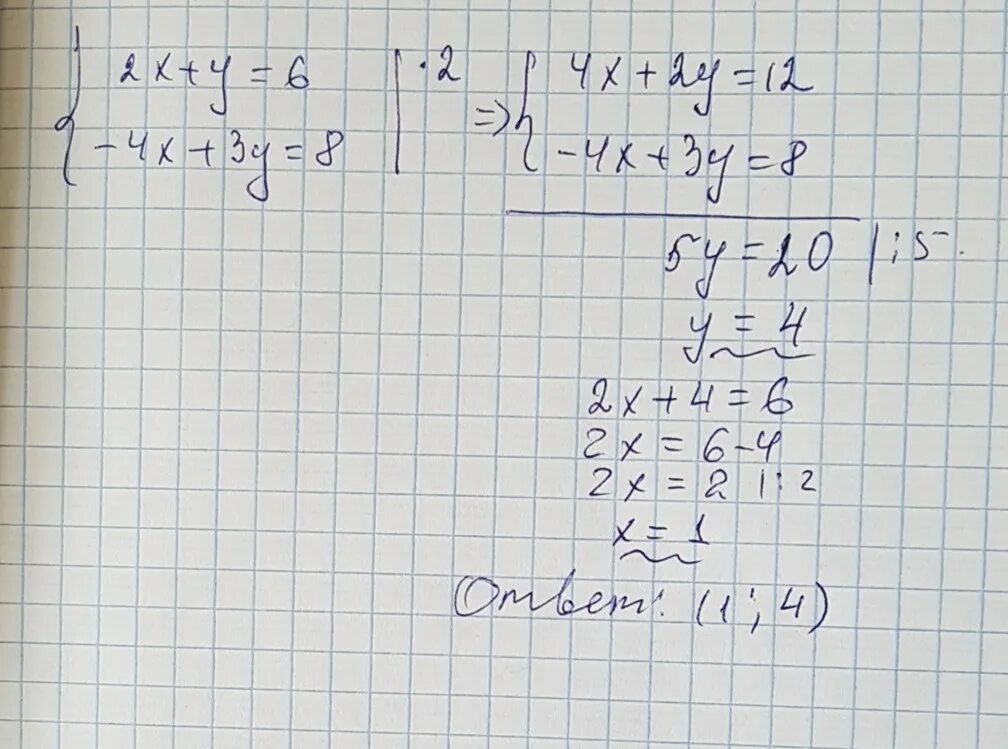 { 2x+y=6 | ·2 => { 4x+2y=12
-4x+3y=8 | -4x+3y=8
5y=20 |:5
y=4
2x+4=6
2x=6-4
2x=2 |:2
x=1
Ответ: (1;4)